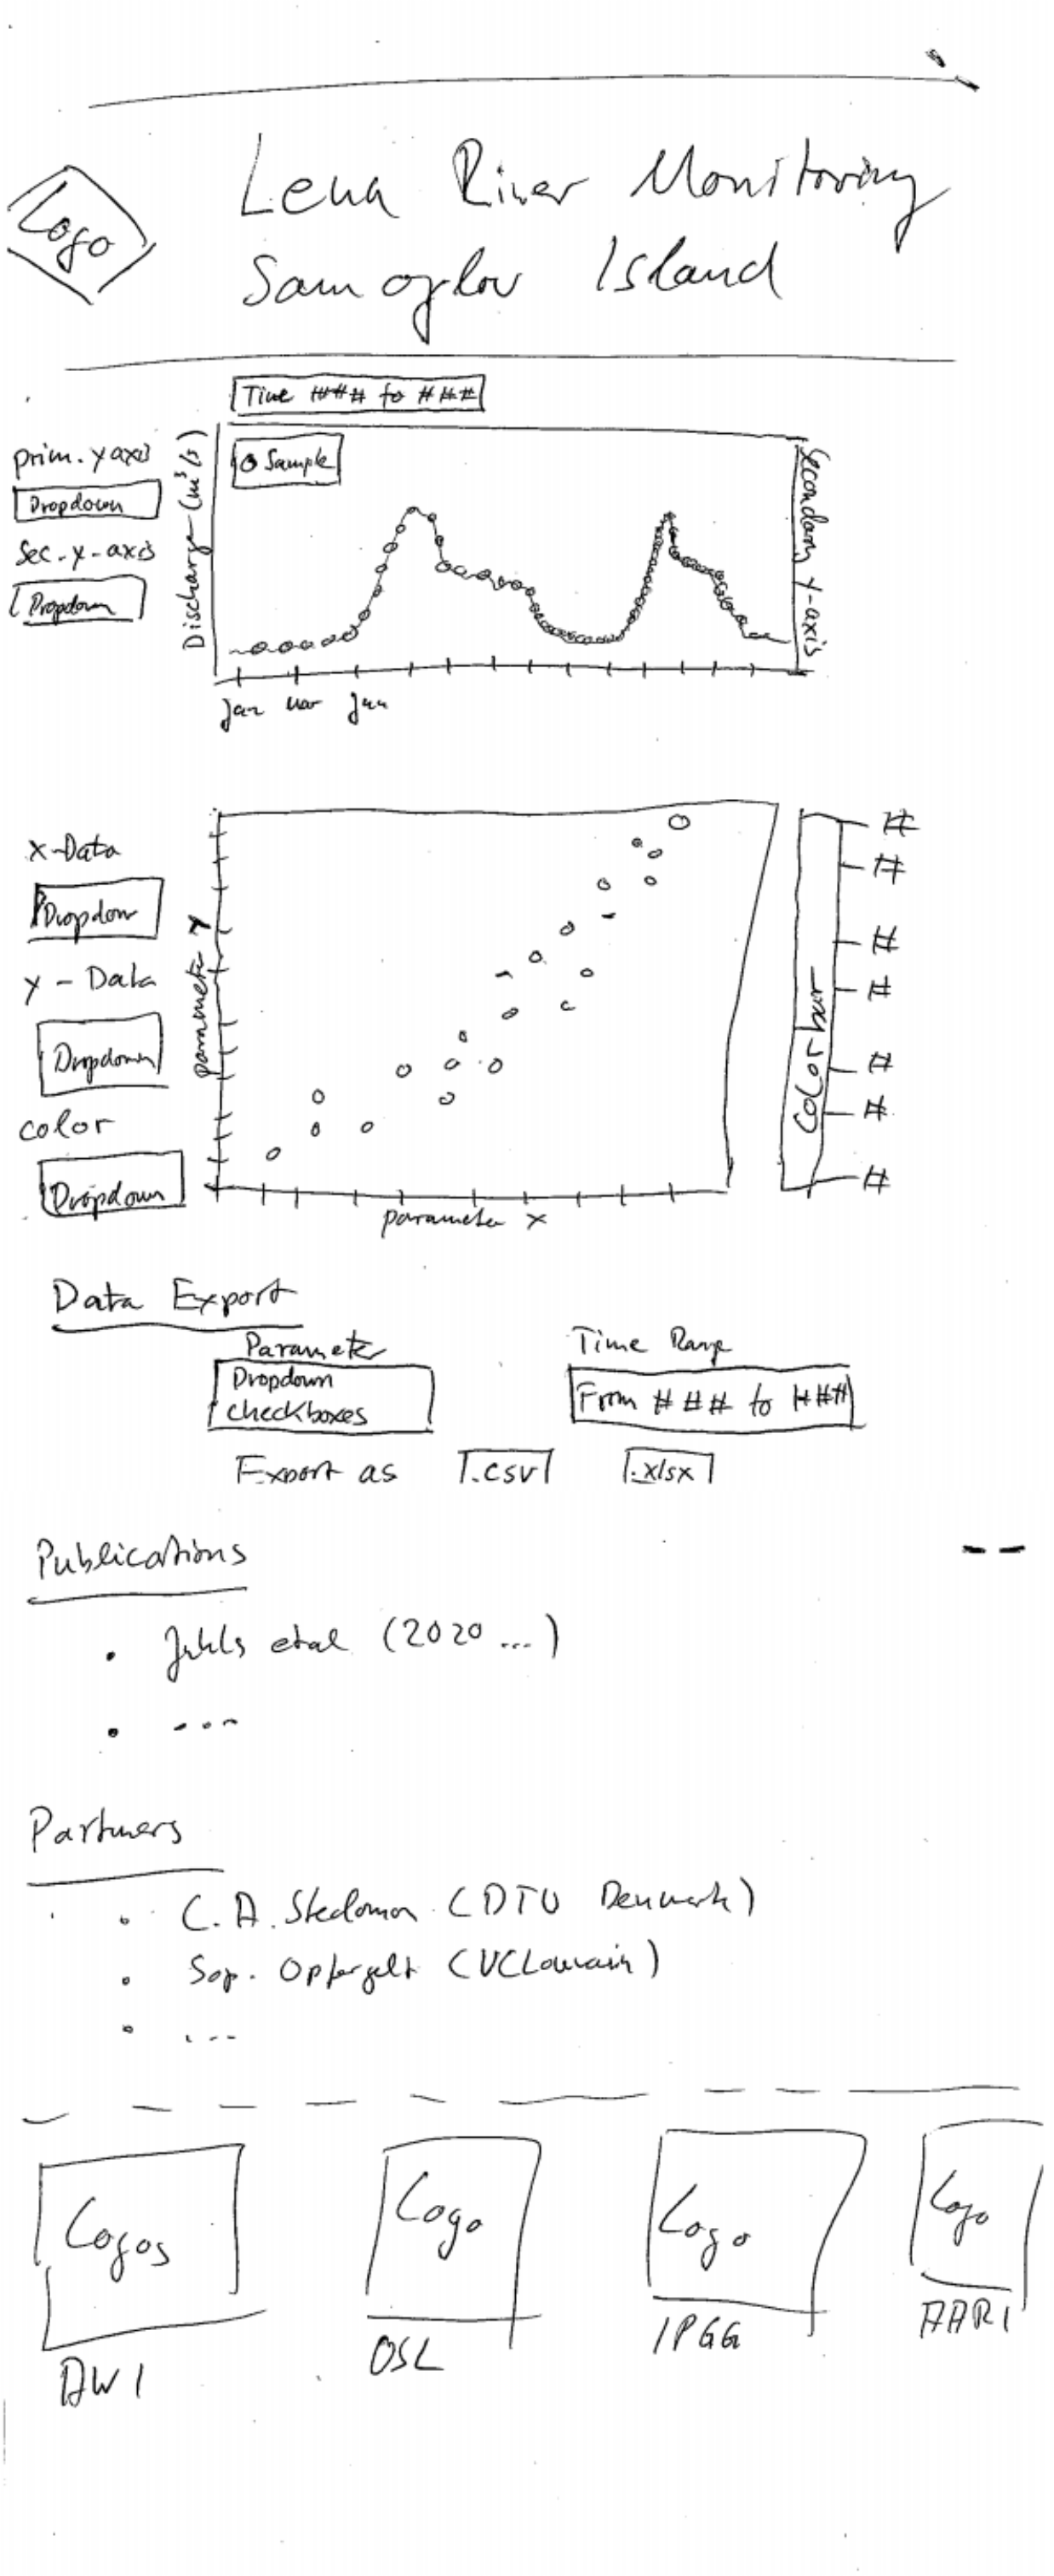 Logo
Lena River Monitoring
Samoylov Island
Time ### to ###
prim. y axis
Dropdown
Sec. y-axis
Dropdown
Discharge (m³/s)
O Sample
Secondary Y-axis
Jan Mar Jun
x-Data
Dropdown
y-Data
Dropdown
color
Dropdown
parameter Y
parameter x
Colorbar
#
#
#
#
#
#
#
Data Export
Parameter
Dropdown
checkboxes
Time Range
From ### to ###
Export as .csv .xlsx
Publications
• Juhls et al (2020 ...)
• ...
Partners
• C. A. Stedmon (DTU Denmark)
• Sop. Opfergelt (UCLouvain)
• ...
Logos
Logo
Logo
Logo
AWI
OSL
IPGG
AARI